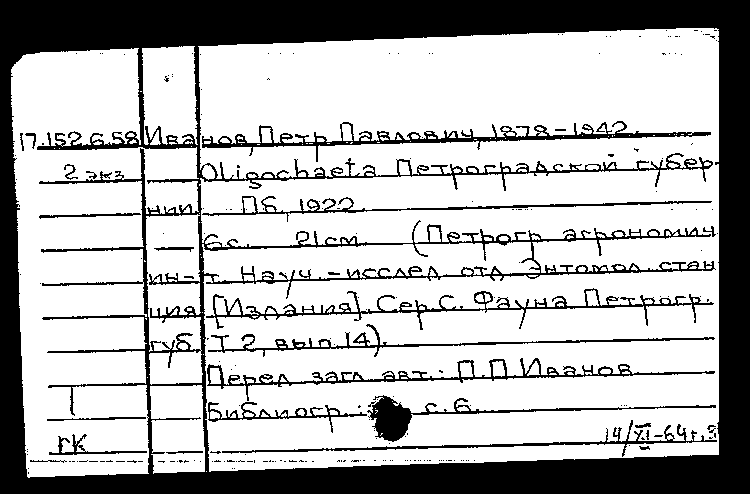 17.152.6.58 Иванов, Петр Павлович, 1878-1942.
2 экз Oligochaeta Петроградской губер-
нии. Пб., 1922.
6 с. 21 см. (Петрогр. агрономич
ин-т. Науч.-исслед. отд. Энтомол. стан
ция. [Издания]. Сер. С. Фауна Петрогр.
губ. Т 2, вып. 14).
Перед загл. авт.: П.П. Иванов
Библиогр.: с. 6.
гк 14/XI-64г.